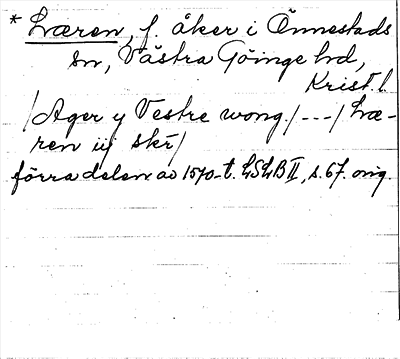 * Læren, f. åker i Önnestads
sn, Västra Göinge hd,
Krist. l.
/Ager y Vestre wong./---/ Læ-
ren iij skr/
förra delen av 1570-t. LSLB II, s. 67. orig.